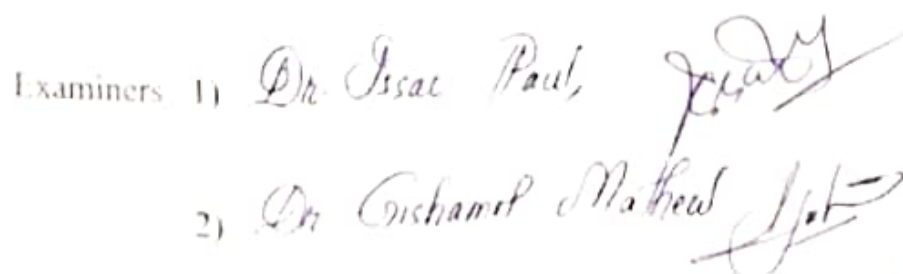 Examiners 1) Dr. Issac Paul,
2) Dr Gishamol Mathew